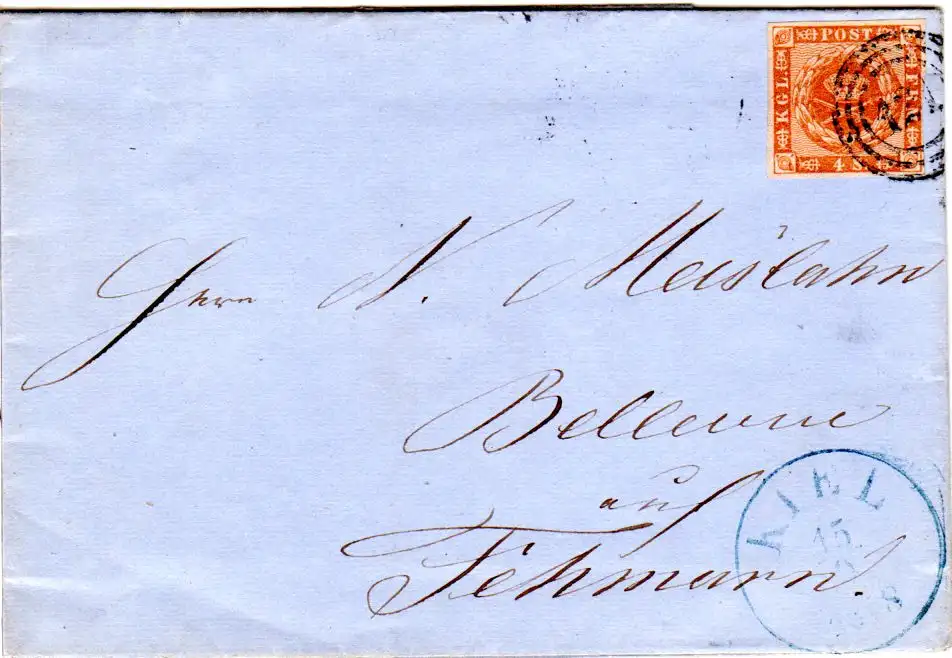 KGL. POST FRM
4 S.
Herrn N. Meislahn
Bellevue
auf
Fehmarn.
KIEL
15